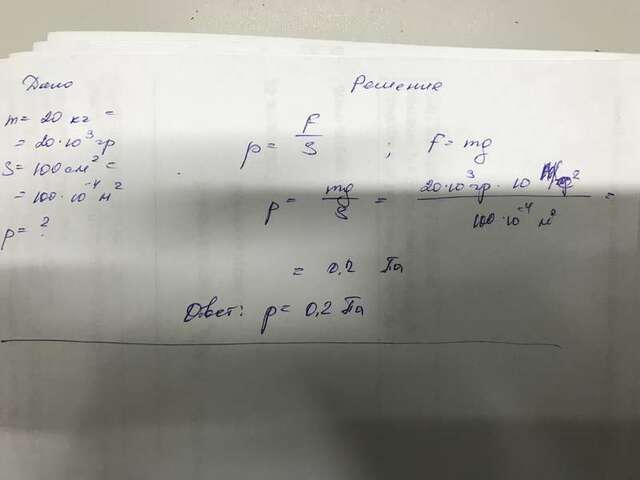 Дано
m = 20 кг =
= 20·10³ гр
S = 100 см² =
= 100·10⁻⁴ м²
p = ?
Решение
p = F/S ; F = mg
p = mg/S = 20·10³ гр · 10 / 100·10⁻⁴ м² =
= 0,2 Па
Ответ: p = 0,2 Па